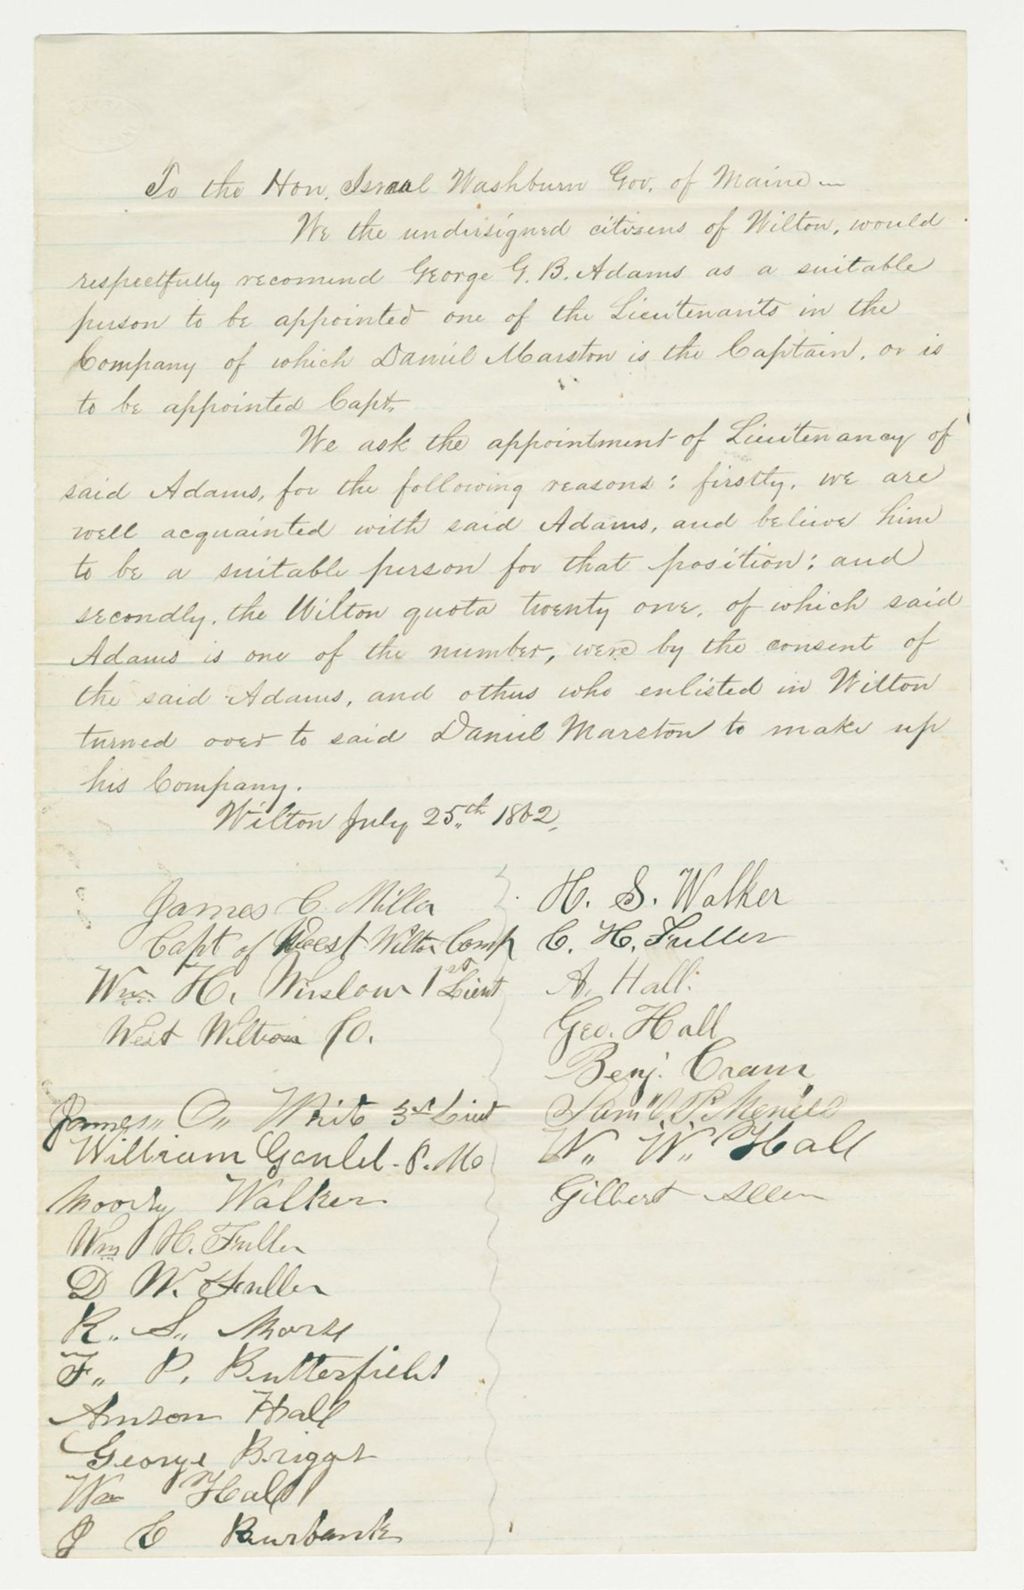 To the Hon. Israel Washburn Gov. of Maine
We the undersigned citizens of Wilton, would
respectfully recomend George G. B. Adams as a suitable
person to be appointed one of the Lieutenants in the
Company of which Daniel Marston is the Captain, or is
to be appointed Capt.
We ask the appointment of Lieutenancy of
said Adams, for the following reasons: firstly, we are
well acquainted with said Adams, and believe him
to be a suitable person for that position; and
secondly, the Wilton quota twenty one, of which said
Adams is one of the number, were by the consent of
the said Adams, and others who enlisted in Wilton
turned over to said Daniel Marston to make up
his Company.
Wilton July 25th 1862.
James C. Miller
Capt of West Wilton Comp
Wm H. Winslow 1st Lieut
West Wilton Co.
James O. 3d Lieut
William Gould. P. M.
Moody Walker
Wm H. Fuller
D W. Fuller
R. S. Morse
F. P. Butterfield
Anson Hall
George Briggs
Wm Hall
J C Burbank
H. S. Walker
C. H. Fuller
A. Hall.
Geo. Hall
Benj. Cram
Saml P.
W. W. Hall
Gilbert Allen